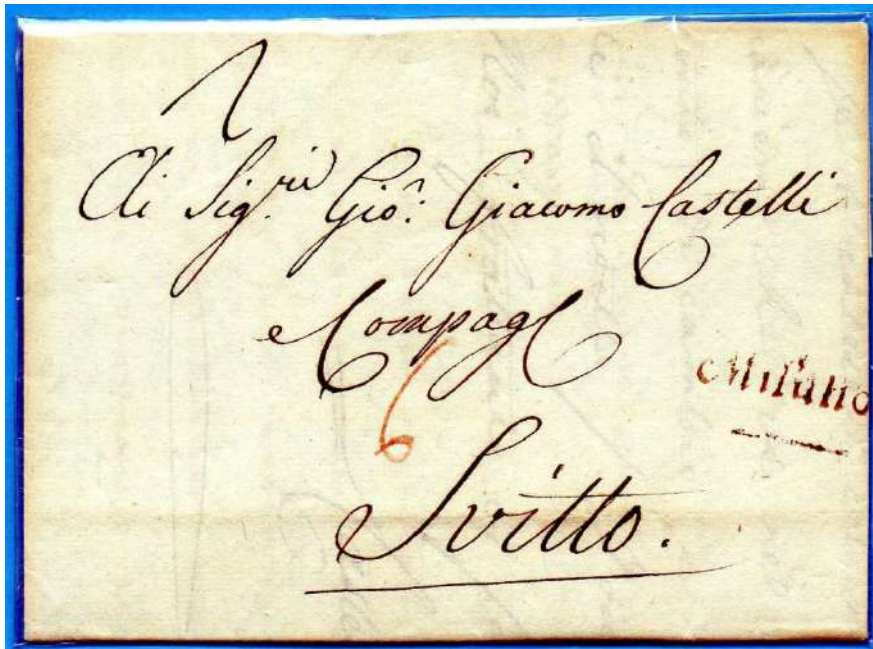 Alli Sig.ri Gio: Giacomo Castelli
e Compag
6
Milano
Svitto.